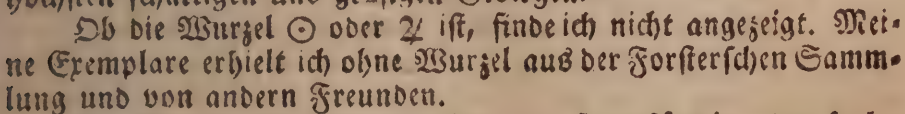 Ob die Wurzel ☉ oder ♃ ist, finde ich nicht angezeigt. Mei-
ne Exemplare erhielt ich ohne Wurzel aus der Forsterschen Samm-
lung und von andern Freunden.